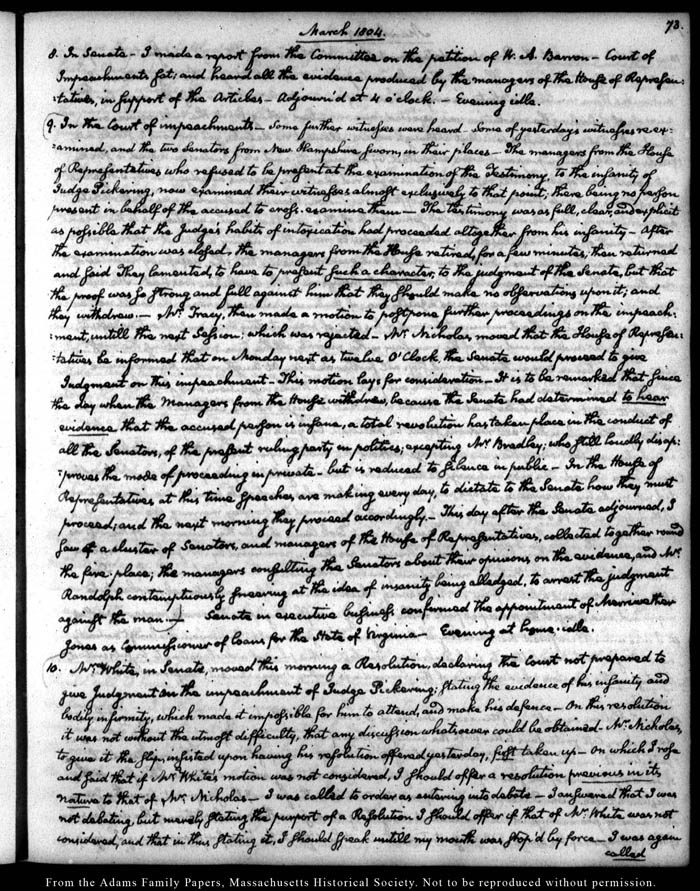 March 1804.
73.
8. In Senate – I made a report from the Committee on the petition of W. A. Barron – Court of
Impeachments sat; and heard all the evidence produced by the managers of the House of Represen-
:tatives, in support of the Articles – Adjourn'd at 4 o'clock. – Evening idle.
9. In the Court of impeachments – Some further witnesses were heard – Some of yesterdays witnesses re ex-
:amined, and the two Senators from New Hampshire sworn, in their places – The managers from the House
of Representatives who refused to be present at the examination of the Testimony, to the insanity of
Judge Pickering, now examined their witnesses almost exclusively to that point, there being no person
present in behalf of the accused to cross-examine them – The testimony was as full, clear, and explicit
as possible that the Judge's habits of intoxication had proceeded altogether from his insanity – After
the examination was closed, the managers from the House retired, for a few minutes, then returned
and said They lamented, to have to present such a character, to the judgment of the Senate, but that
the proof was so strong and full against him that they should make no observations upon it; and
they withdrew. – Mr. Tracy, then made a motion to postpone further proceedings on the impeach-
:ment, untill the next Session; which was rejected – Mr. Nicholas, moved that the House of Represen-
:tatives be informed that on Monday next as twelve O'Clock, the Senate would proceed to give
Judgment on this impeachment – This motion lays for consideration – It is to be remarked that since
the day when the Managers from the House withdrew, because the Senate had determined to hear
evidence that the accused person is insane, a total revolution has taken place in the conduct of
all the Senators, of the present ruling party in politics; excepting Mr. Bradley; who still loudly disap:
:proves the mode of proceeding in private – but is reduced to silence in public – In the House of
Representatives at this time speeches are making every day, to dictate to the Senate how they must
proceed; and the next morning they proceed accordingly. – This day after the Senate adjourned, I
saw a cluster of Senators, and managers of the House of Representatives, collected together round
the fire-place; the managers consulting the Senators about their opinions on the evidence, and Mr.
Randolph contemptuously sneering at the idea of insanity being alledged, to arrest the judgment
against the man. – Senate in executive business confirmed the appointment of Merriwether
Jones as Commissioner of loans for the State of Virginia – Evening at home-idle.
10. Mr. White, in Senate, moved this morning a Resolution, declaring the Court not prepared to
give Judgment on the impeachment of Judge Pickering; stating the evidence of his insanity and
bodily infirmity, which made it impossible for him to attend, and make his defence – On this resolution
it was not without the utmost difficulty, that any discussion whatsoever could be obtained – Mr. Nicholas,
to give it the slip, insisted upon having his resolution offered yesterday, first taken up – On which I rose
and said that if Mr. White's motion was not considered, I should offer a resolution previous in its
nature to that of Mr. Nicholas – I was called to order as entering into debate – I answered that I was
not debating, but merely stating the purport of a Resolution I should offer if that of Mr. White was not
considered, and that in thus stating it, I should speak untill my mouth was stop'd by force – I was again
called
From the Adams Family Papers, Massachusetts Historical Society. Not to be reproduced without permission.